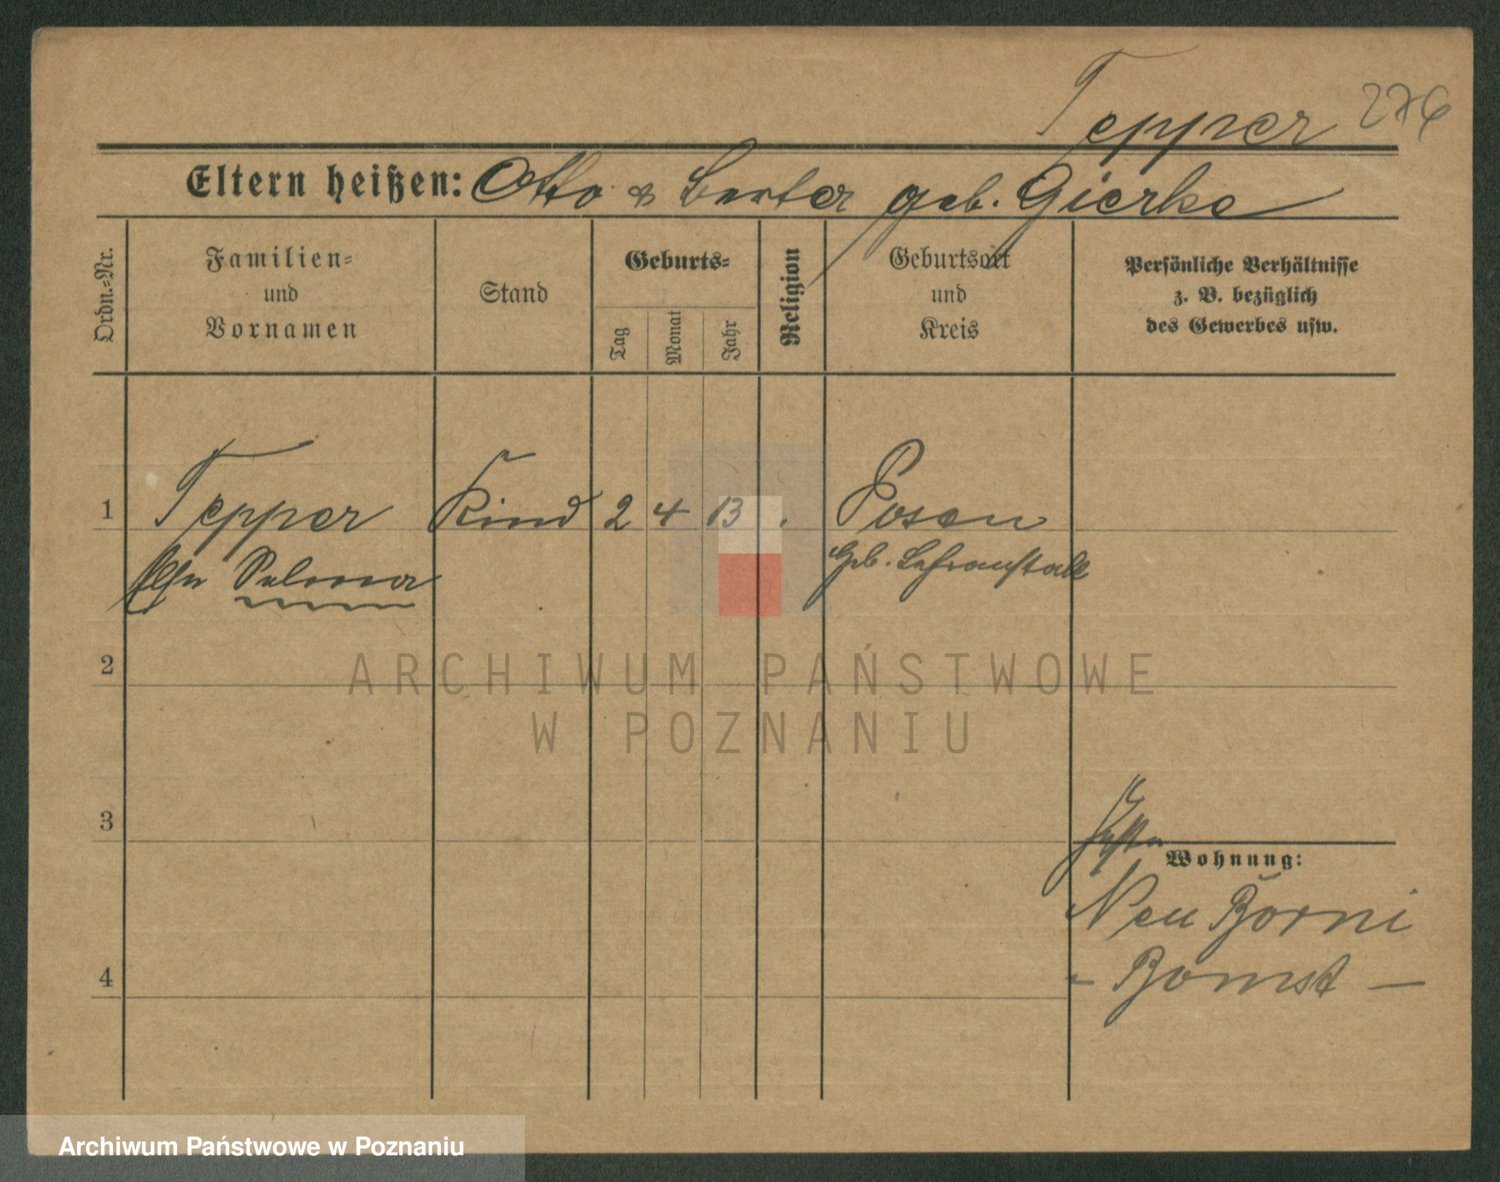 Tepper 276
Eltern heißen: Otto & Berta geb. Gierke
Ordn.-Nr.
Familien-
und
Vornamen
Stand
Geburts-
Tag
Monat
Jahr
Religion
Geburtsort
und
Kreis
Persönliche Verhältnisse
z. B. bezüglich
des Gewerbes usw.
1 Tepper Kind 2 4 13 . Posen
Selma Geb. Lehranstalt
2
ARCHIWUM PAŃSTWOWE
W POZNANIU
3
Wohnung:
Neu Borni
4 - Bomst -
Archiwum Państwowe w Poznaniu